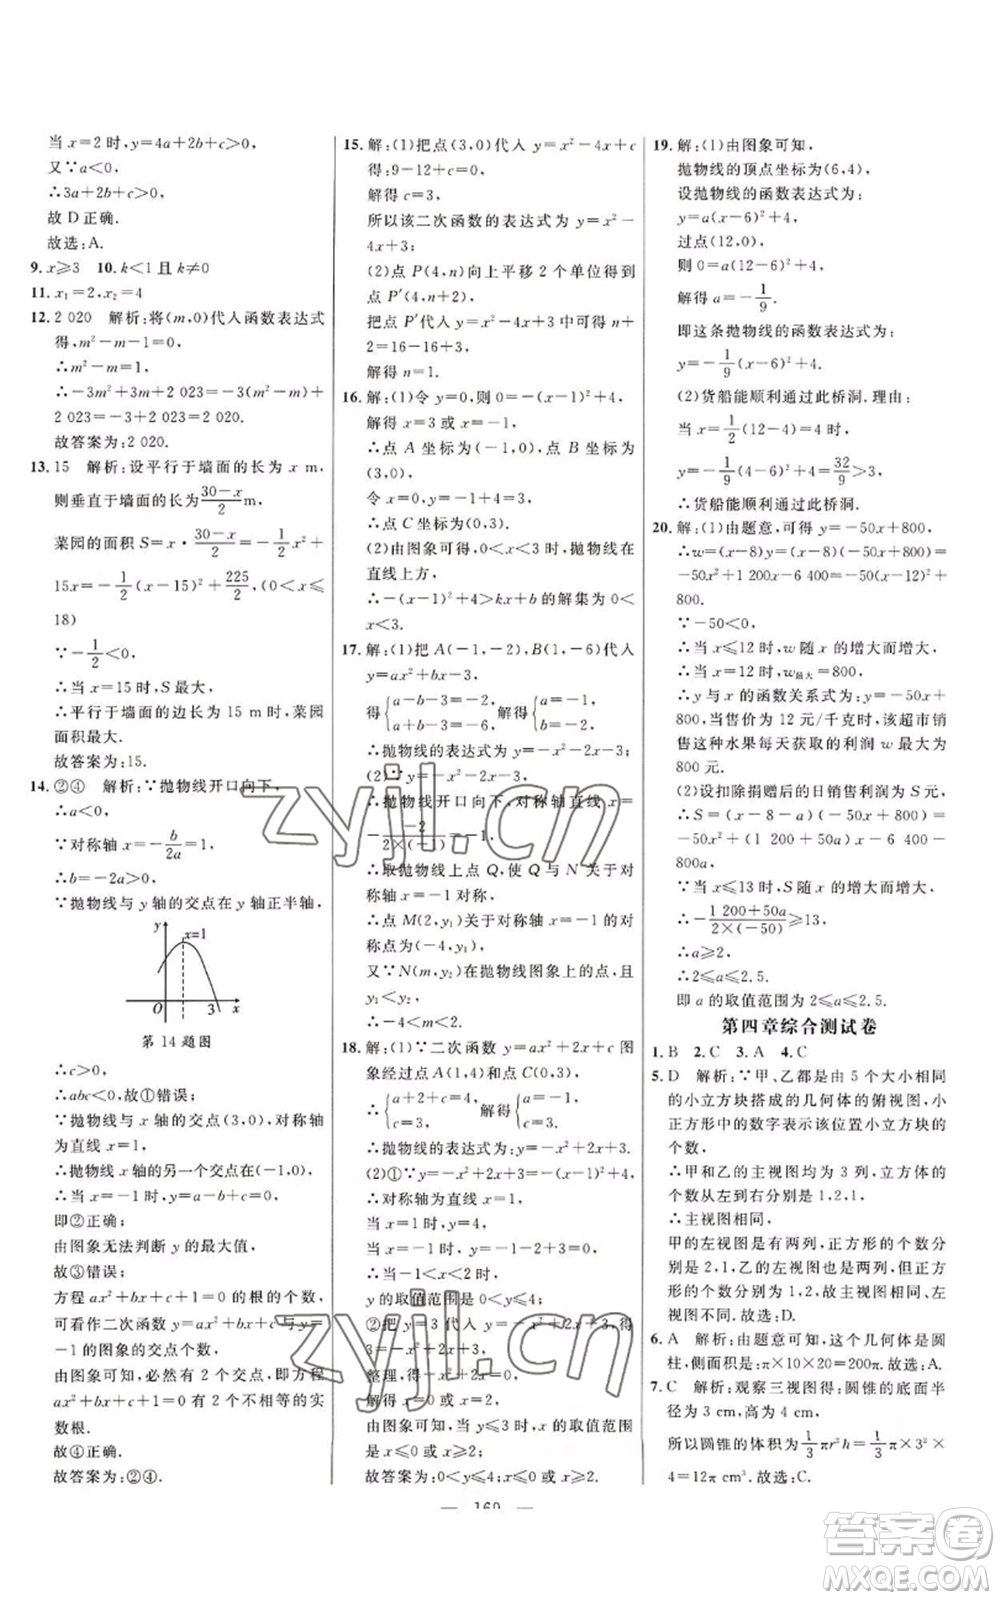 当 x=2 时,y=4a+2b+c>0,
又∵a<0,
∴3a+2b+c>0,
故 D 正确.
故选:A.
9. x≥3 10. k<1 且 k≠0
11. x₁=2,x₂=4
12. 2 020 解析:将(m,0)代入函数表达式
得,m²-m-1=0,
∴m²-m=1,
∴-3m²+3m+2 023=-3(m²-m)+
2 023=-3+2 023=2 020.
故答案为:2 020.
13. 15 解析:设平行于墙面的长为 x m,
则垂直于墙面的长为(30-x)/2 m,
菜园的面积 S=x·(30-x)/2=-1/2x²+
15x=-1/2(x-15)²+225/2,(0<x≤
18)
∵-1/2<0,
∴当 x=15 时,S 最大,
∴平行于墙面的边长为 15 m 时,菜园
面积最大.
故答案为:15.
14. ②④ 解析:∵抛物线开口向下,
∴a<0,
∵对称轴 x=-b/2a=1,
∴b=-2a>0,
∵抛物线与 y 轴的交点在 y 轴正半轴,
y
x=1
O 3 x
第 14 题图
∴c>0,
∴abc<0,故①错误;
∵抛物线与 x 轴的交点(3,0),对称轴
为直线 x=1,
∴抛物线 x 轴的另一个交点在(-1,0),
∴当 x=-1 时,y=a-b+c=0,
即②正确;
由图象无法判断 y 的最大值,
故③错误;
方程 ax²+bx+c+1=0 的根的个数,
可看作二次函数 y=ax²+bx+c 与 y=
-1 的图象的交点个数,
由图象可知,必然有 2 个交点,即方程
ax²+bx+c+1=0 有 2 个不相等的实
数根.
故④正确.
故答案为:②④.
15. 解:(1)把点(3,0)代入 y=x²-4x+c
得:9-12+c=0,
解得 c=3,
所以该二次函数的表达式为 y=x²-
4x+3;
(2)点 P(4,n)向上平移 2 个单位得到
点 P′(4,n+2),
把点 P′代入 y=x²-4x+3 中可得 n+
2=16-16+3,
解得 n=1.
16. 解:(1)令 y=0,则 0=-(x-1)²+4,
解得 x=3 或 x=-1,
∴点 A 坐标为(-1,0),点 B 坐标为
(3,0),
令 x=0,y=3,
∴点 C 坐标为(0,3).
(2)由图象可得,0<x<3,抛物线在
直线上方,
∴-(x-1)²+4>kx+b 的解集为 0<
x<3.
17. 解:(1)把 A(-1,-2),B(1,-6)代入
y=ax²+bx-3,
得{a-b-3=-2, a+b-3=-6, 解得{a=-1, b=-2.
∴抛物线的表达式为 y=-x²-2x-3;
(2)∵抛物线开口向下,对称轴直线 x=
--2/2×(-1)=-1,
∴取抛物线上点 Q,使 Q 与 N 关于对
称轴 x=-1 对称,
∴点 M(2,y₁)关于对称轴 x=-1 的对
称点为(-4,y₁),
又∵N(m,y₂)在抛物线图象上的点,且
y₁<y₂,
∴-4<m<2.
18. 解:(1)∵二次函数 y=ax²+2x+c 图
象经过点 A(1,4)和点 C(0,3),
∴{a+2+c=4, c=3, 解得{a=-1, c=3,
∴抛物线的表达式为:y=-x²+2x+3;
(2)①∵y=-x²+2x+3=-(x-1)²+4,
∴对称轴为直线 x=1,
当 x=1 时,y=4,
当 x=-1 时,y=-1-2+3=0,
∴当-1<x<2 时,
y 的取值范围是 0<y≤4;
②把 y=3 代入 y=-x²+2x+3 得
3=-x²+2x+3,
整理,得-x²+2x=0,
解得 x=0 或 x=2,
由图象可知,当 y≤3 时,x 的取值范围
是 x≤0 或 x≥2,
故答案为:0<y≤4;x≤0 或 x≥2.
19. 解:(1)由图象可知,
抛物线的顶点坐标为(6,4),
设抛物线的函数表达式为:
y=a(x-6)²+4,
过点(12,0),
则 0=a(12-6)²+4,
解得 a=-1/9.
即这条抛物线的函数表达式为:
y=-1/9(x-6)²+4.
(2)货船能顺利通过此桥洞.理由:
当 x=1/2(12-4)=4 时,
y=-1/9(4-6)²+4=32/9>3,
∴货船能顺利通过此桥洞.
20. 解:(1)由题意,可得 y=-50x+800,
∴w=(x-8)y=(x-8)(-50x+800)=
-50x²+1 200x-6 400=-50(x-12)²+
800,
∵-50<0,
∴当 x≤12 时,w 随 x 的增大而增大,
∴当 x=12 时,w最大=800,
∴y 与 x 的函数关系式为 y=-50x+
800,当售价为 12 元/千克时,该超市销
售这种水果每天获取的利润最大为
800 元.
(2)设扣除捐赠后的日销售利润为 S 元,
∴S=(x-8-a)(-50x+800)=
-50x²+(1 200+50a)x-6 400-
800a,
∵当 x≤13 时,S 随 x 的增大而增大,
∴-1 200+50a/2×(-50)≥13,
∴a≥2,
∴2≤a≤2.5,
即 a 的取值范围为 2≤a≤2.5.
第四章综合测试卷
1. B 2. C 3. A 4. C
5. D 解析:∵甲、乙都是由 5 个大小相同
的小立方块搭成的几何体的俯视图,小
正方形中的数字表示该位置小立方块的
个数,
∴甲和乙的主视图均为 3 列,立方体的
个数从左到右分别是 1,2,1,
∴主视图相同,
甲的左视图是有两列,正方形的个数分
别是 2,1,乙的左视图也是两列,但正方
形的个数分别为 1,2,故主视图相同、左
视图不同.故选:D.
6. A 解析:由题意可知,这个几何体是圆
柱,侧面积是:π×10×20=200π.故选:A.
7. C 解析:观察三视图得:圆锥的底面半
径为 3 cm,高为 4 cm,
所以圆锥的体积为1/3πr²h=1/3×π×3²×
4=12π cm³.故选:C.
— 169 —
zyjl.cn
zyjl.cn
答案圈
MXQE.COM